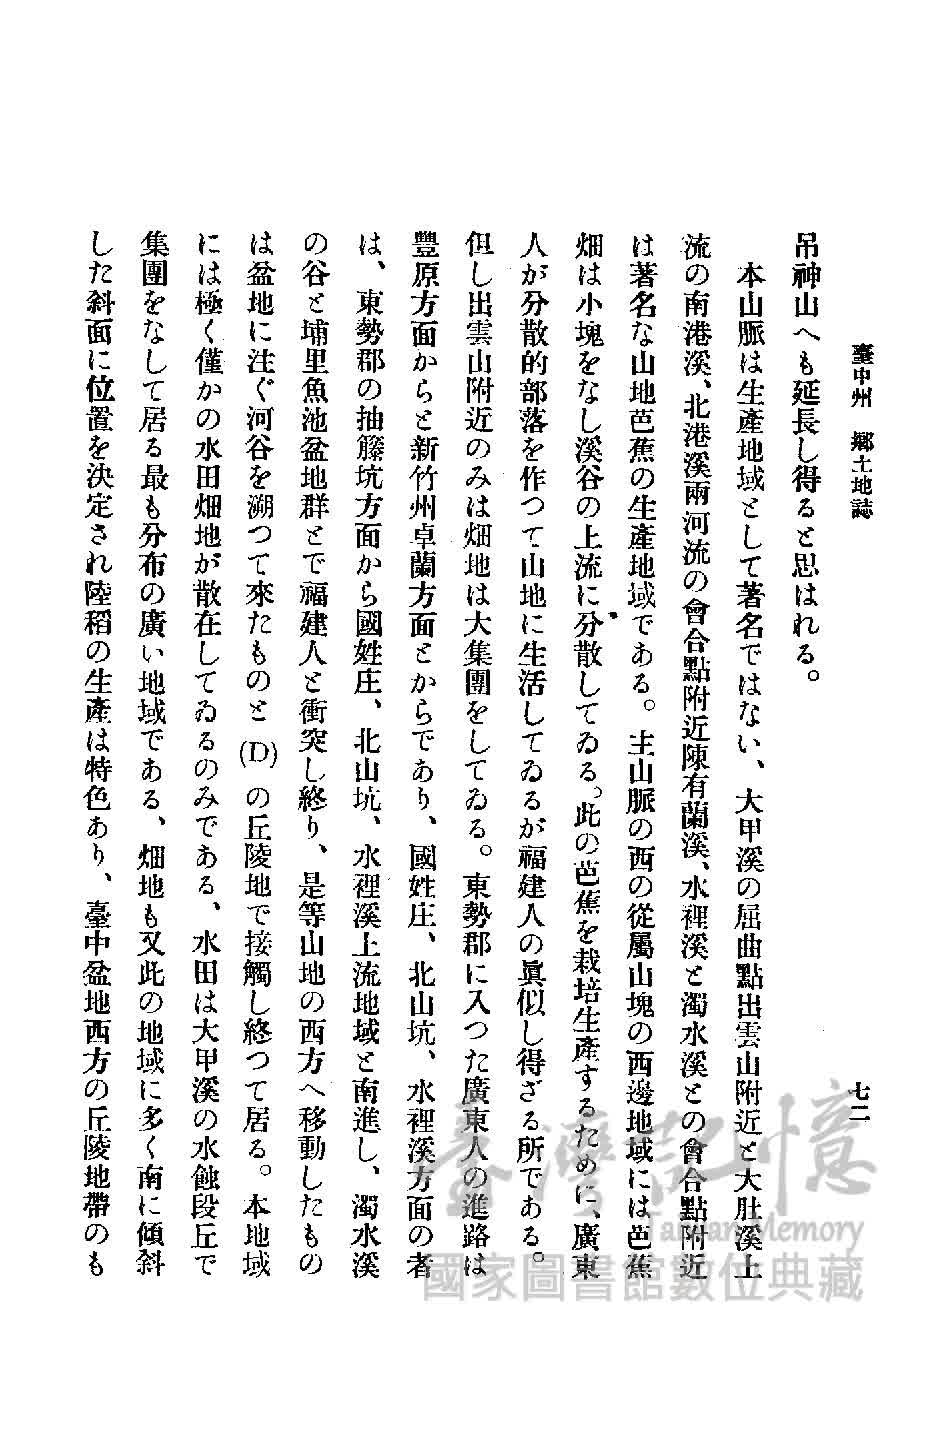 臺中州　鄕土地誌
七二
吊神山へも延長し得ると思はれる。
本山脈は生產地域として著名ではない、大甲溪の屈曲點出雲山附近と大肚溪上
流の南港溪、北港溪兩河流の會合點附近陳有蘭溪、水裡溪と濁水溪との會合點附近
は著名な山地芭蕉の生產地域である。主山脈の西の從屬山塊の西邊地域には芭蕉
畑は小塊をなし溪谷の上流に分散してゐる。此の芭蕉を栽培生產するために、廣東
人が分散的部落を作つて山地に生活してゐるが福建人の眞似し得ざる所である。
但し出雲山附近のみは畑地は大集團をしてゐる。東勢郡に入つた廣東人の進路は
豐原方面からと新竹州卓蘭方面とからであり、國姓庄、北山坑、水裡溪方面の者
は、東勢郡の抽籐坑方面から國姓庄、北山坑、水裡溪上流地域と南進し、濁水溪
の谷と埔里魚池盆地群とで福建人と衝突し終り、是等山地の西方へ移動したもの
は盆地に注ぐ河谷を溯つて來たものと(D)の丘陵地で接觸し終つて居る。本地域
には極く僅かの水田畑地が散在してゐるのみである、水田は大甲溪の水蝕段丘で
集團をなして居る最も分布の廣い地域である、畑地も又此の地域に多く南に傾斜
した斜面に位置を決定され陸稻の生產は特色あり、臺中盆地西方の丘陵地帶のも
臺灣記憶
Taiwan Memory
國家圖書館數位典藏